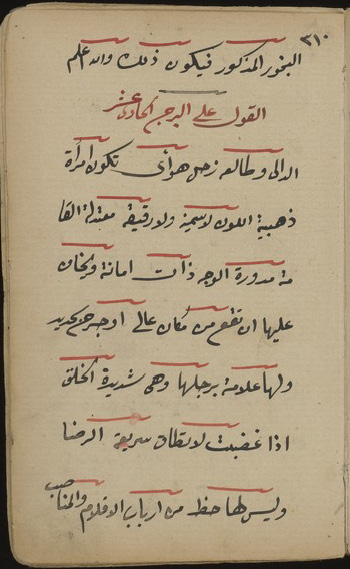 ٣١٠
البخور المذكور فيكون ذلك والله اعلم
القول على البرج الحادى عشر
الدالى وطالعه زحل هوائى تكون امرأة
ذهبية اللون لاسمينة ولا رقيقة معتدلة القا
مة مدورة الوجه ذات امانة ويخاف
عليها ان تقع من مكان عالى او جرح بحديد
ولها علامة برجلها وهى شديدة الخلق
اذا غضبت لا تطاق سريعة الرضا
وليس لها حظ من ارباب الاقلام والمناصب